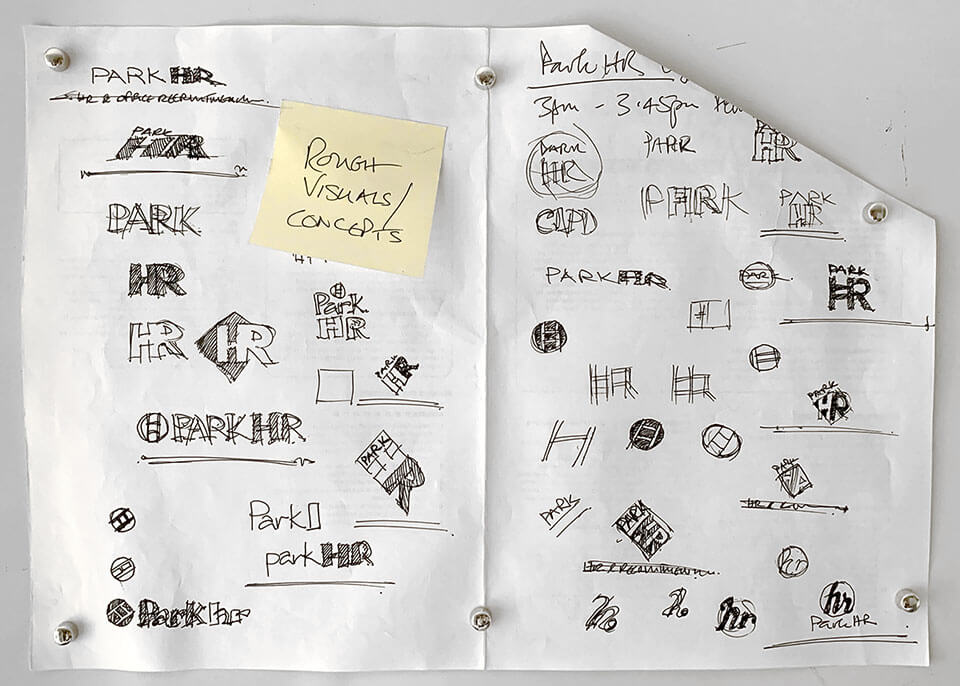 PARK HR
HR & OFFICE RECRUITMENT
PARK
HR
PARK
HR
HR
HR
PARK HR
Park hr
ROUGH
VISUALS/
CONCEPTS
Park
HR
PARK
HR
PARK
HR
Park
park HR
Park HR
3Am - 3.45pm
PARK
HR
PARK
PARK
HR
PHRK
PARK
HR
PARK HR
PARK
PARK
HR
H
HR
HR
PARK
HR
H
PARK
PARK
HR
PARK
HR & RECRUITMENT
hr
hr
hr
hr
hr
Park HR